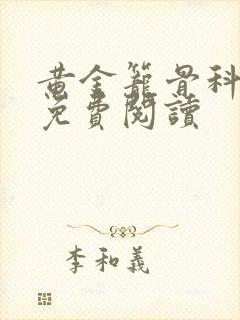 黄金籠骨科
免費閱讀
李和義